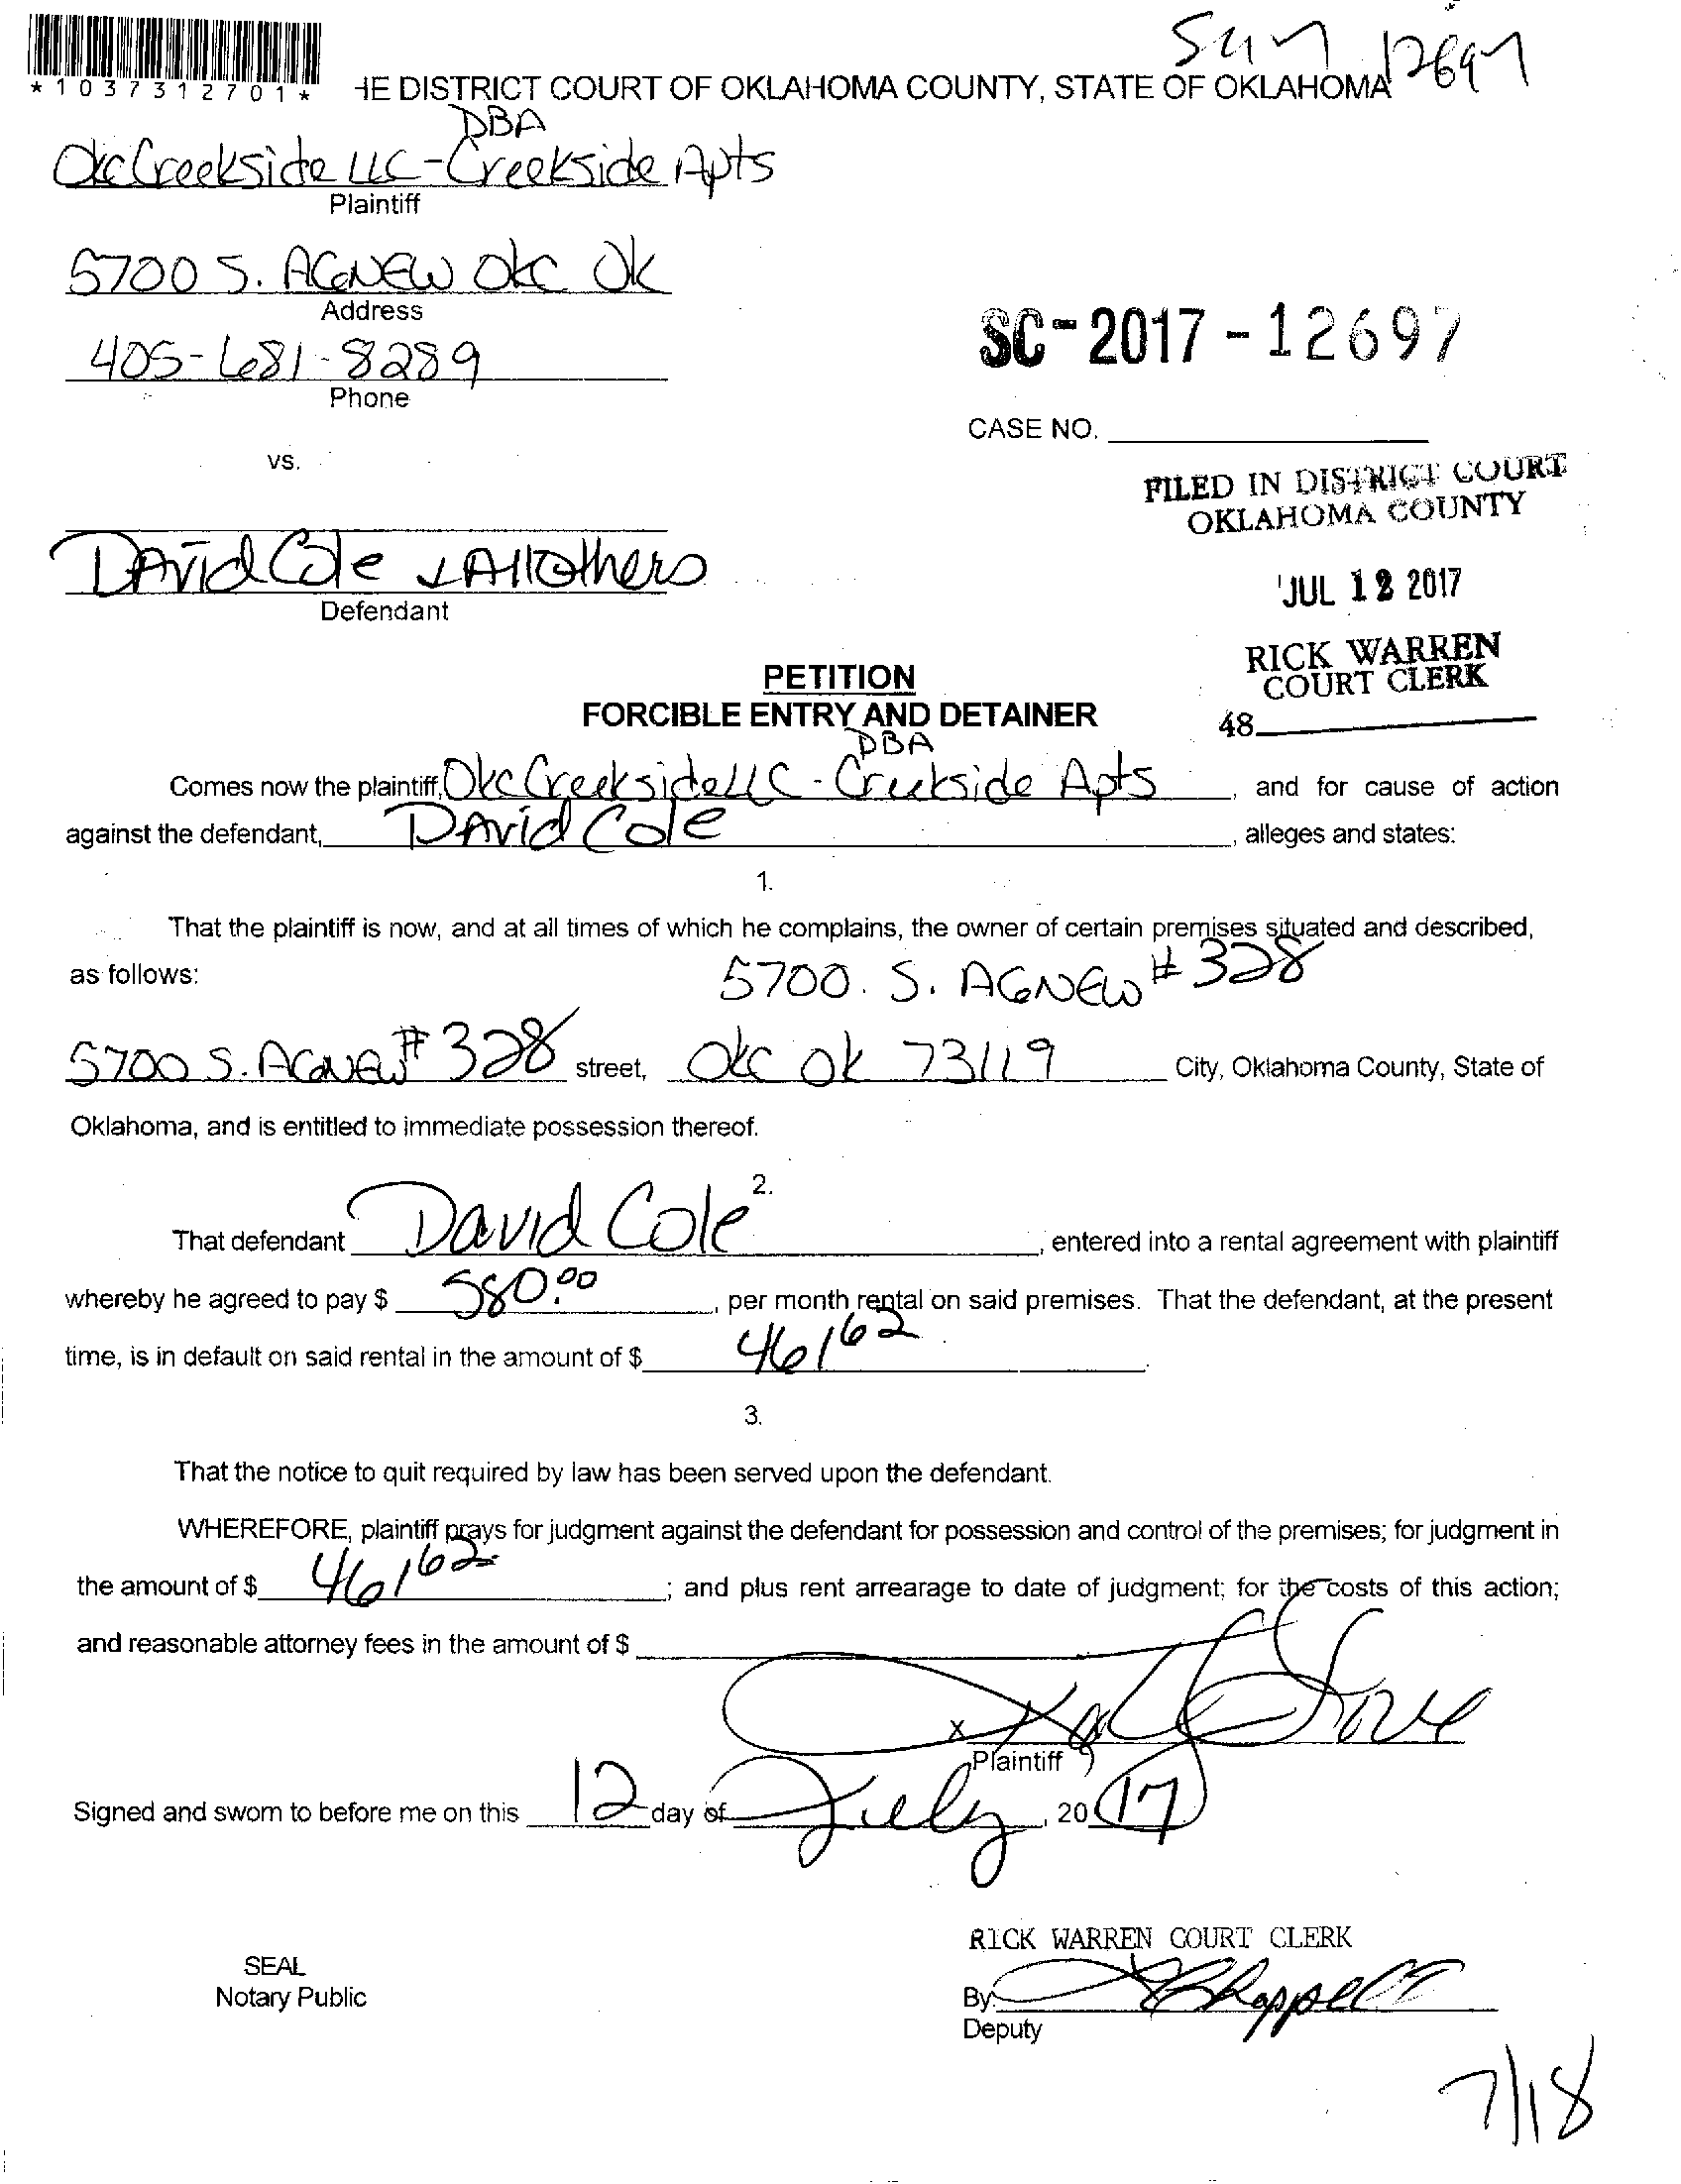 *1037312701*
HE DISTRICT COURT OF OKLAHOMA COUNTY, STATE OF OKLAHOMA
12697
DBA
Okc Creekside LLC - Creekside Apts
Plaintiff
5700 S. AGNEW OKC OK
Address
405-681-8289
Phone
SC-2017-12697
CASE NO.
vs.
FILED IN DISTRICT COURT
OKLAHOMA COUNTY
JUL 12 2017
RICK WARREN
COURT CLERK
48
David Cole & All Others
Defendant
PETITION
FORCIBLE ENTRY AND DETAINER
DBA
Comes now the plaintiff, Okc Creekside LLC - Creekside Apts, and for cause of action
against the defendant, David Cole, alleges and states:
1.
That the plaintiff is now, and at all times of which he complains, the owner of certain premises situated and described,
as follows: 5700. S. AGNEW # 328
5700 S. AGNEW # 328 street, OKC OK 73119 City, Oklahoma County, State of
Oklahoma, and is entitled to immediate possession thereof.
2.
That defendant David Cole, entered into a rental agreement with plaintiff
whereby he agreed to pay $ 580.00, per month rental on said premises. That the defendant, at the present
time, is in default on said rental in the amount of $ 461 62.
3.
That the notice to quit required by law has been served upon the defendant.
WHEREFORE, plaintiff prays for judgment against the defendant for possession and control of the premises; for judgment in
the amount of $ 461 62; and plus rent arrearage to date of judgment; for the costs of this action;
and reasonable attorney fees in the amount of $
X
Plaintiff
Signed and sworn to before me on this 12 day of July, 20 17
RICK WARREN COURT CLERK
SEAL
Notary Public
By: Chappell
Deputy
7/18